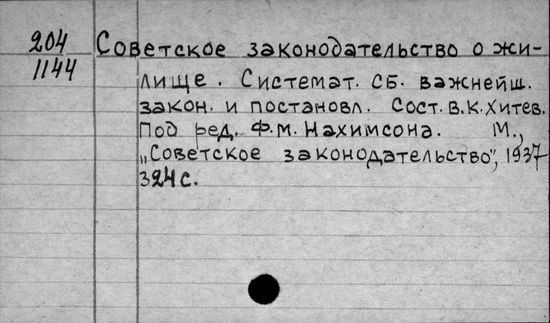 204 Советское законодательство о жи-
1144
лище. Системат. сб. важнейш.
закон. и постановл. Сост. В.К. Хитев.
Под ред. Ф.М. Нахимсона. М.,
„Советское законодательство", 1937
324 с.